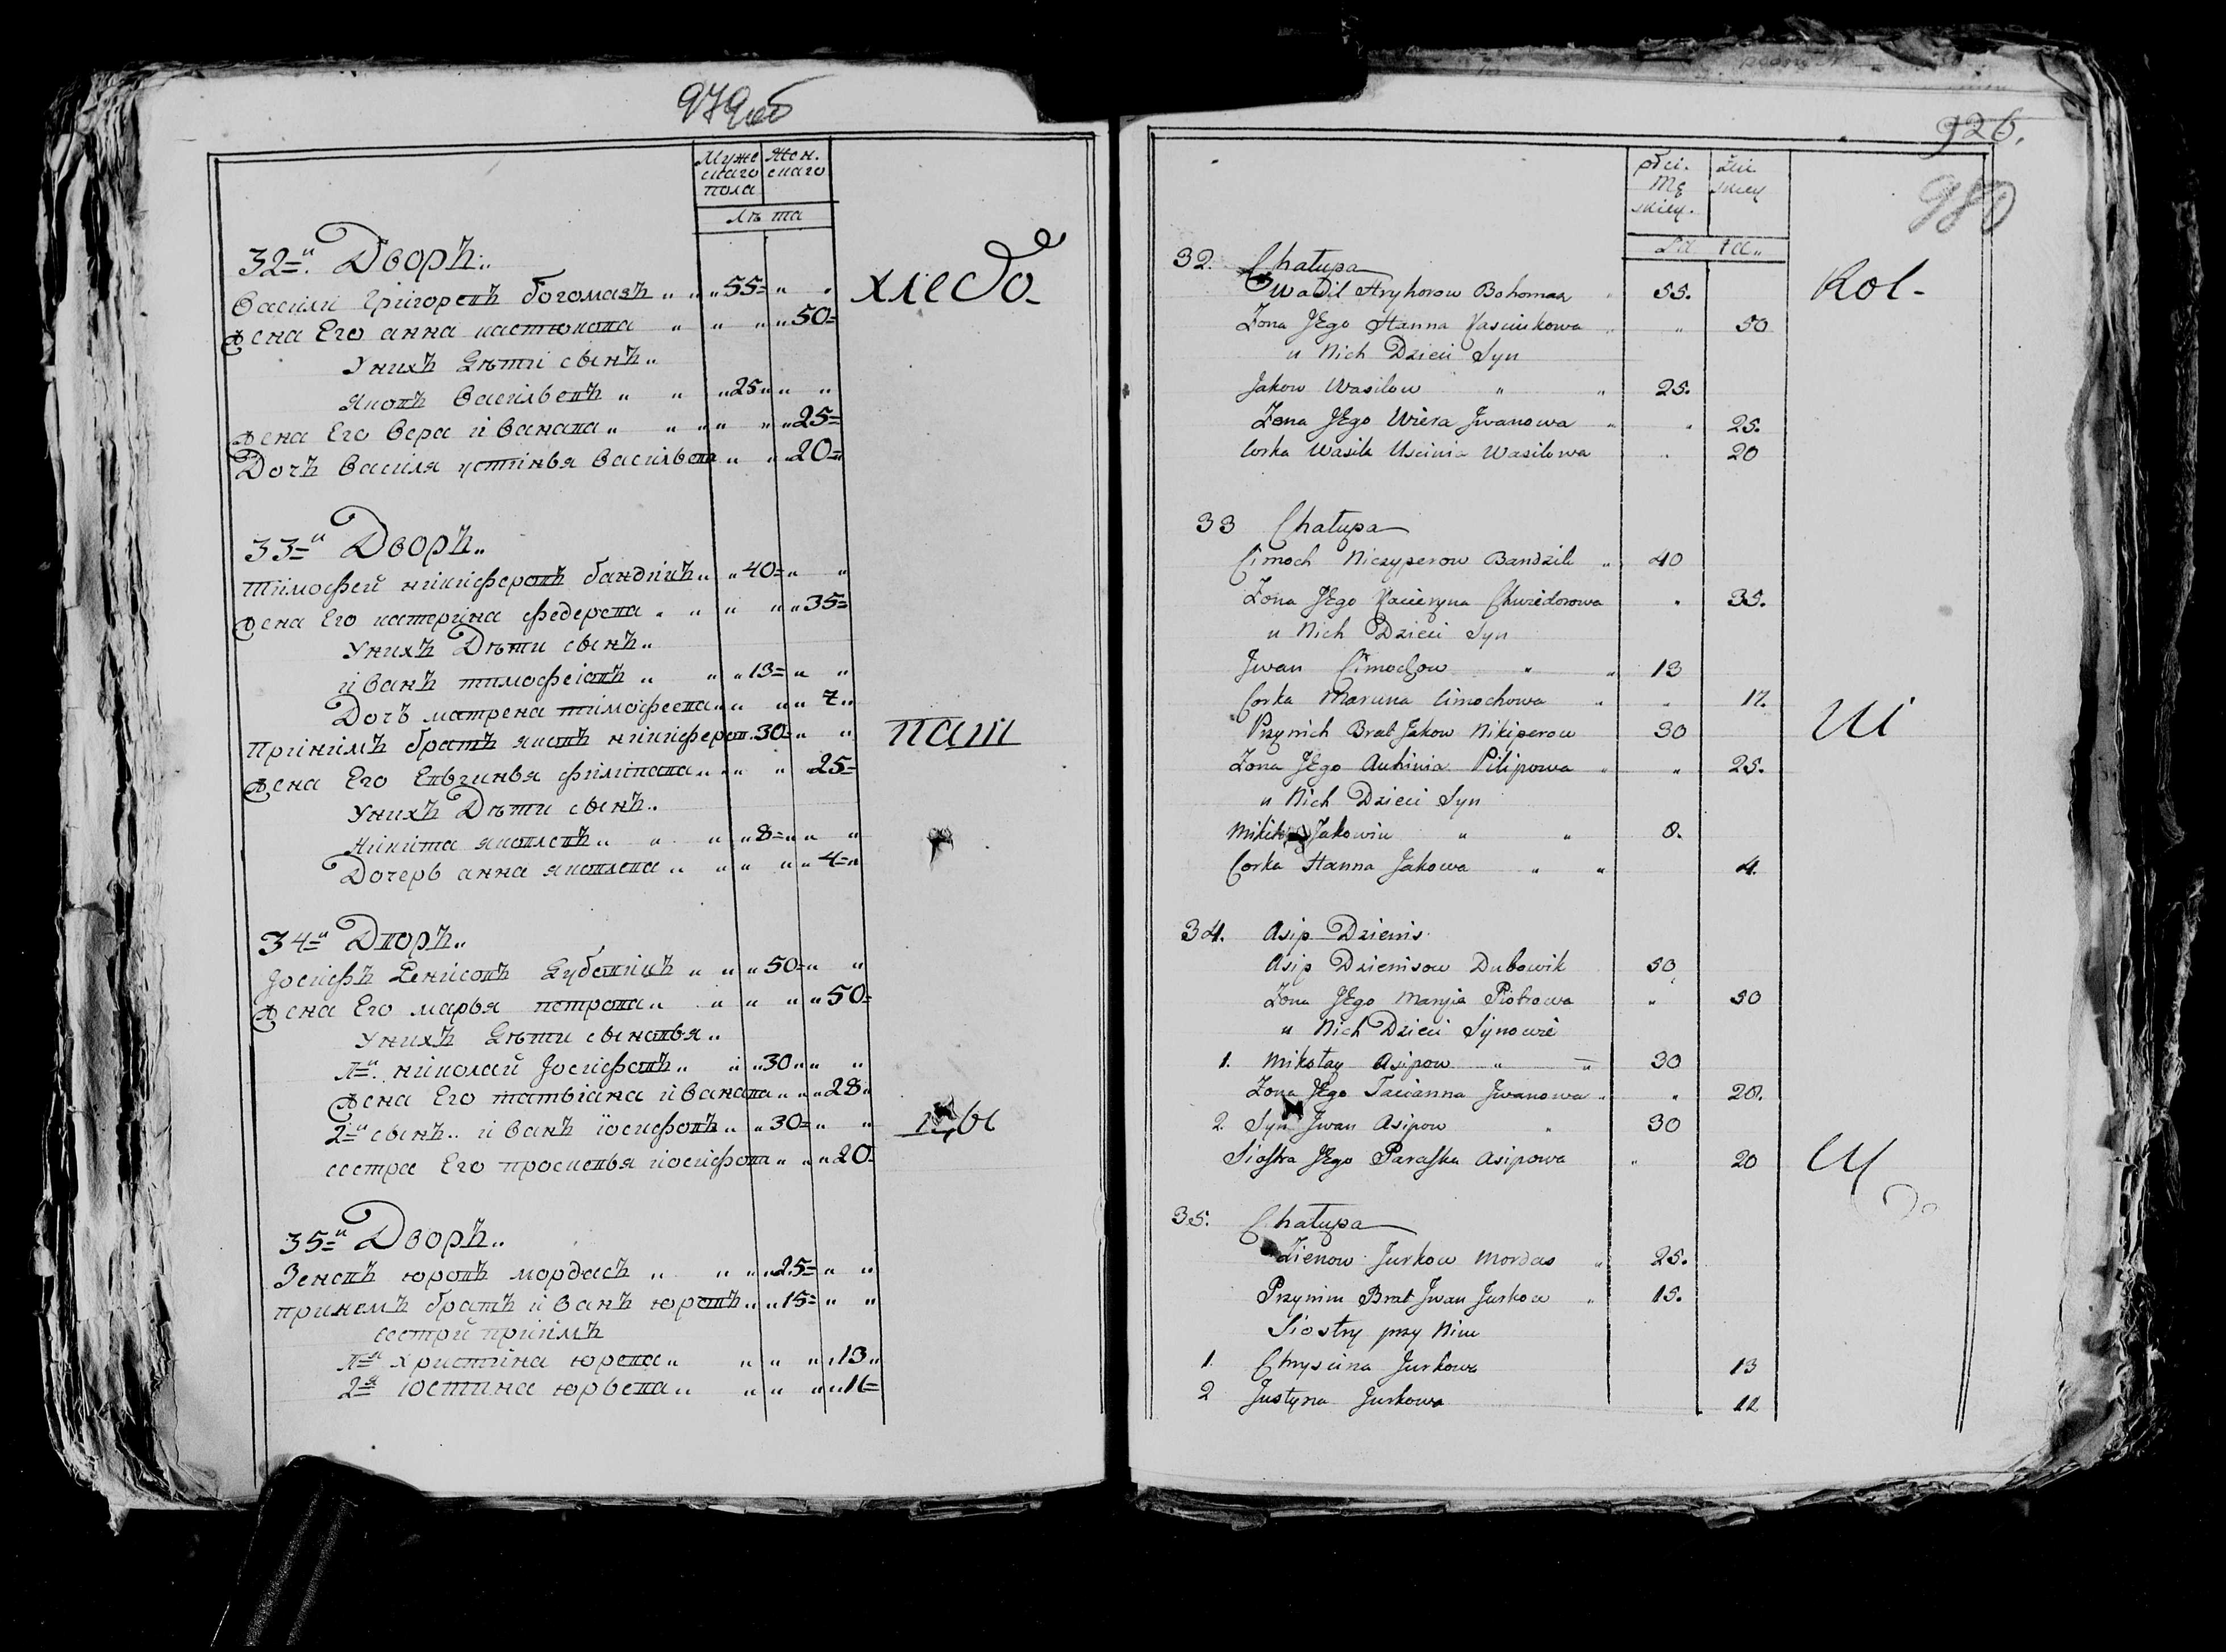 979об
Муже Жен.
скаго скаго
пола
Лѣта
32=й Дворъ..
Васили Григоревъ богомазъ 55=
жена Его анна кастюкова 50=
Унихъ Дѣти сынъ..
Яковъ Васильевъ 25
жена Его Вера иванава 25=
Дочъ Василя устинья Васильева 20=
хлебо-
33=й Дворъ..
Тимофей никиферовъ бандикъ 40=
жена Его катерина федерева 35=
Унихъ Дѣти сынъ..
иванъ тимофеіевъ 13=
Дочъ матрена тимофеева 7
принимъ братъ яковъ никиферов. 30=
жена Его Евгинья филипава 25=
Унихъ Дѣти сынъ..
Никита яковлевъ 8=
Дочерь анна яковлева 4=
паш
34=й Дворъ..
Јосифъ Денисовъ Дубовикъ 50=
жена Его марья петрова 50=
Унихъ Дѣти сыновья..
п=й николай Јосифовъ 30=
жена Его татьіана иванава 28
2=й сынъ.. иванъ іосифовъ 30=
сестра Его просковья иосифова 20=
35=й Дворъ..
Зеновъ юровъ мордасъ 25=
принемъ братъ иванъ юровъ 15=
сестри приимъ
п=я христина юрева 13
2=я юстина юрьева 11=
926.
980
płci. żeń.
Mę skiey
skiey.
La ta
32. Chałupa
Wasil Hryhorow Bohomaz 55.
Żona JEgo Hanna Kasciukowa 50
u Nich Dzieci Syn
Jakow Wasilow 25.
Żona JEgo Wiera Jwanowa 25.
Corka Wasila Uscinia Wasilowa 20
Kol-
33 Chałupa
Cimoch Niczyperow Bandzik 40
Żona JEgo Kacieryna Chwiedorowa 35.
u Nich Dzieci Syn
Jwan Cimochow 13
Corka Maruna Cimochowa 17.
Przy nich Brat Jakow Nikiperow 30
Żona JEgo Auhinia Pilipowa 25.
u Nich Dzieci Syn
Mikita Jakowiu 8.
Corka Hanna Jakowa 4.
34. Asip Dzienis
Asip Dzienisow Dubowik 50
Żona JEgo Maryia Piotrowa 50
u Nich Dzieci Synowie
1. Mikołay Asipow 30
Żona JEgo Tacianna Jwanowa 28.
2. Syn Jwan Asipow 30
Siostra JEgo Paraska Asipowa 20
35. Chałupa
Zienow Jurkow Mordas 25.
Przynim Brat Jwan Jurkow 15.
Siostry przy Nim
1. Chryscina Jurkowa 13
2 Justyna Jurkowa 11